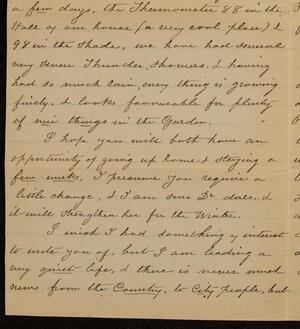 a few days, the Thermometer 88 in the
Hall of our house (a very cool place) &
98 in the Shade, we have had several
very severe Thunder Showers. & having
had so much rain, every thing is growing
finely. & looks favourable for plenty
of nice things in the Garden.
I hope you will both have an
opportunity of going up home & staying a
few weeks, I presume you require a
little change, & I am sure Dr does, &
it will strengthen her for the Winter.
I wish I had something of interest
to write you of, but I am leading a
very quiet life, & there is never much
news from the Country, to City people, but